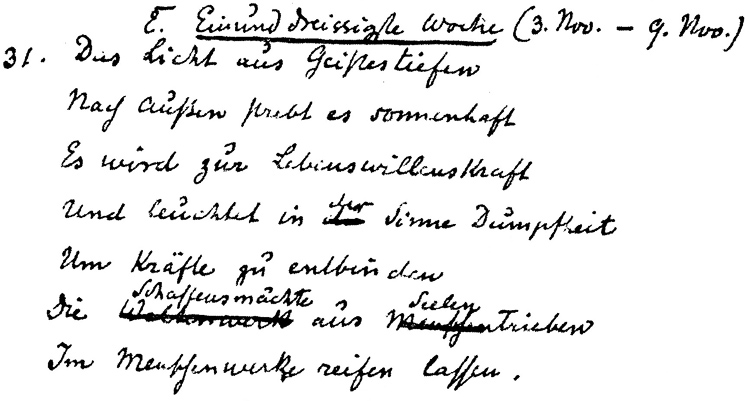 E. Einunddreissigste Woche (3. Nov. – 9. Nov.)
31. Das Licht aus Geistestiefen
Nach außen strebt es sonnenhaft
Es wird zur Lebenswillenskraft
Und leuchtet in der Sinne Dumpfheit
Um Kräfte zu entbinden
Die Schaffensmächte aus Seelentrieben
Im Menschenwerke reifen lassen.